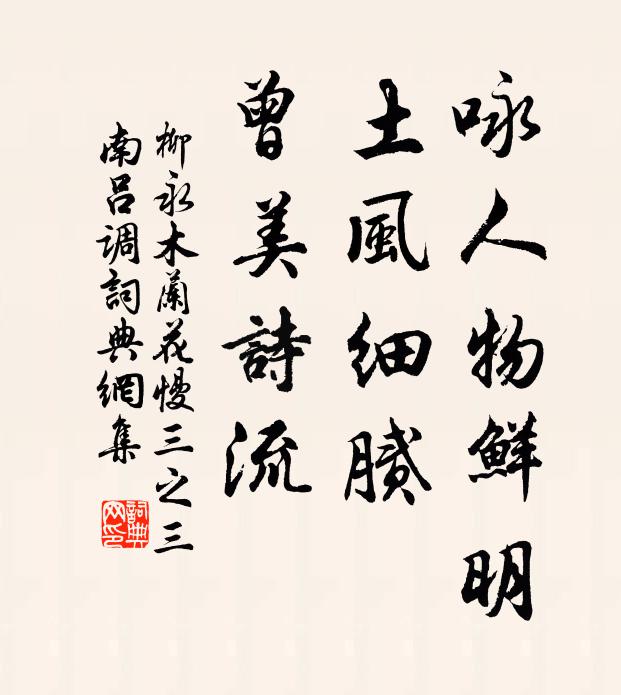 咏人物鮮明
土風細膩
曾美詩流
柳永木蘭花慢三之三
南呂调詞典網集
詞典
网印